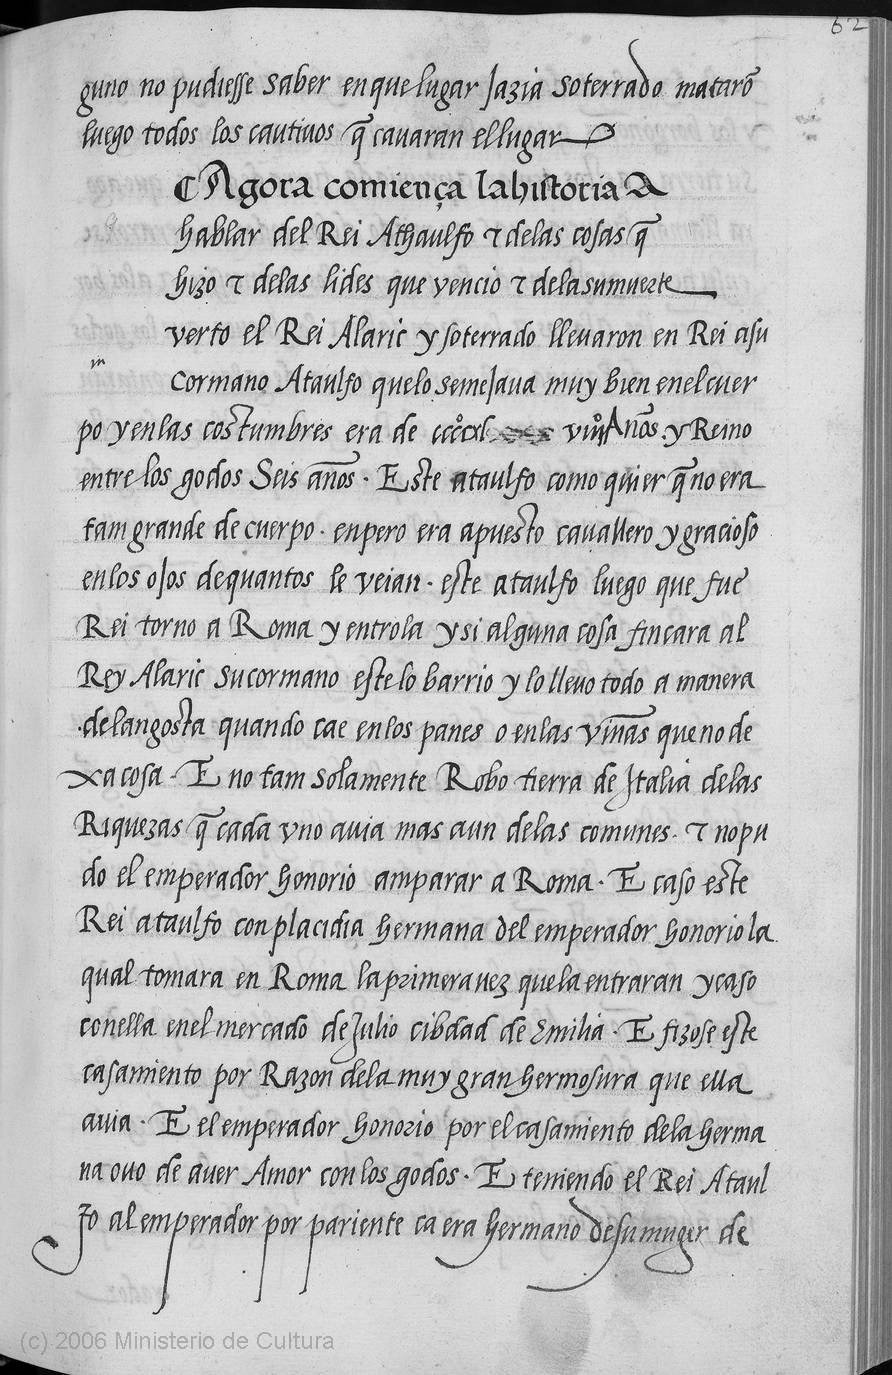 62
guno no pudiesse saber enquelugar jazia soterrado matarõ
luego todos los cautiuos q̃ cauaran ellugar
¶Agora comiença lahistoria A
hablar del Rei Athaulfo ⁊ delas cosas q̃
hizo ⁊ delas lides que vencio ⁊ delasumuerte
verto el Rei Alaric y soterrado lleuaron en Rei asu
m
cormano Ataulfo quelo semejaua muy bien enelcuer
po yenlas costumbres era de años. y Reino
entre los godos Seis años. Este ataulfo como quier q̃ no era
tam grande de cuerpo. enpero era apuesto cauallero y gracioso
enlos ojos dequantos le veian. este ataulfo luego que fue
Rei torno a Roma y entrola ysi alguna cosa fincara al
Rey Alaric sucormano este lo barrio y lo lleuo todo a manera
.delangosta quando cae enlos panes o enlas viñas queno de
xa cosa. E no tam solamente Robo tierra de Jtalia delas
Riquezas q̃ cada vno auia mas aun delas comunes. ⁊ nopu
do el emperador honorio amparar a Roma. E caso este
Rei ataulfo conplacidia hermana del emperador honorio la
qual tomara en Roma laprimeravez quela entraran ycaso
conella enel mercado deJulio cibdad de Emilia. E fizose este
casamiento por Razon dela muy gran hermosura que ella
auia. E el emperador honorio por el casamiento dela herma
na ouo de auer Amor conlos godos. E teniendo el Rei Ataul
fo al emperador por pariente ca era hermano desumuger de
(c) 2006 Ministerio de Cultura